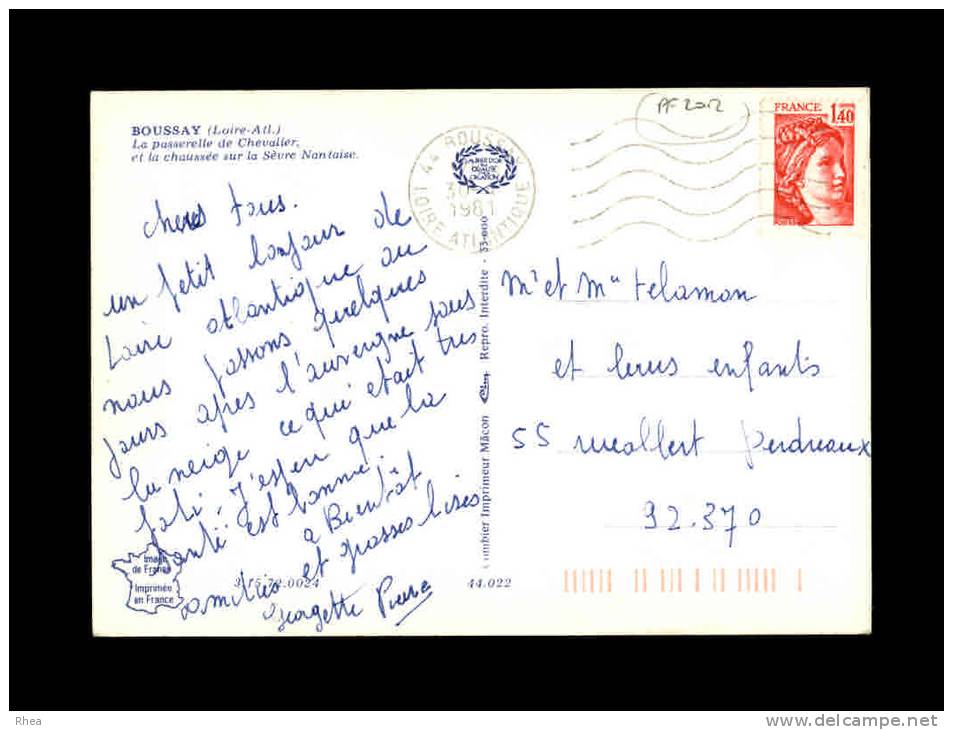 BOUSSAY (Loire-Atl.)
La passerelle de Chevalier,
et la chaussée sur la Sèvre Nantaise.
chers tous.
un petit bonjour de
Loire atlantique ou
nous passons quelques
jours apres l'auvergne sous
la neige ce qui etait tres
joli. J'espere que la
santé est bonne.
a Bientôt
amitiés et grosses bises
Georgette Pierre
Image
de France
Imprimée
en France
3.15.72.0024
44.022
Combier Imprimeur Mâcon
Repro. Interdite - 53-000
44 BOUSSAY
1981
LOIRE ATLANTIQUE
PF 2012
FRANCE
1,40
Mr et Me Telamon
et leurs enfants
55 rue
Perdreaux
92.370
Rhea
www.delcampe.net